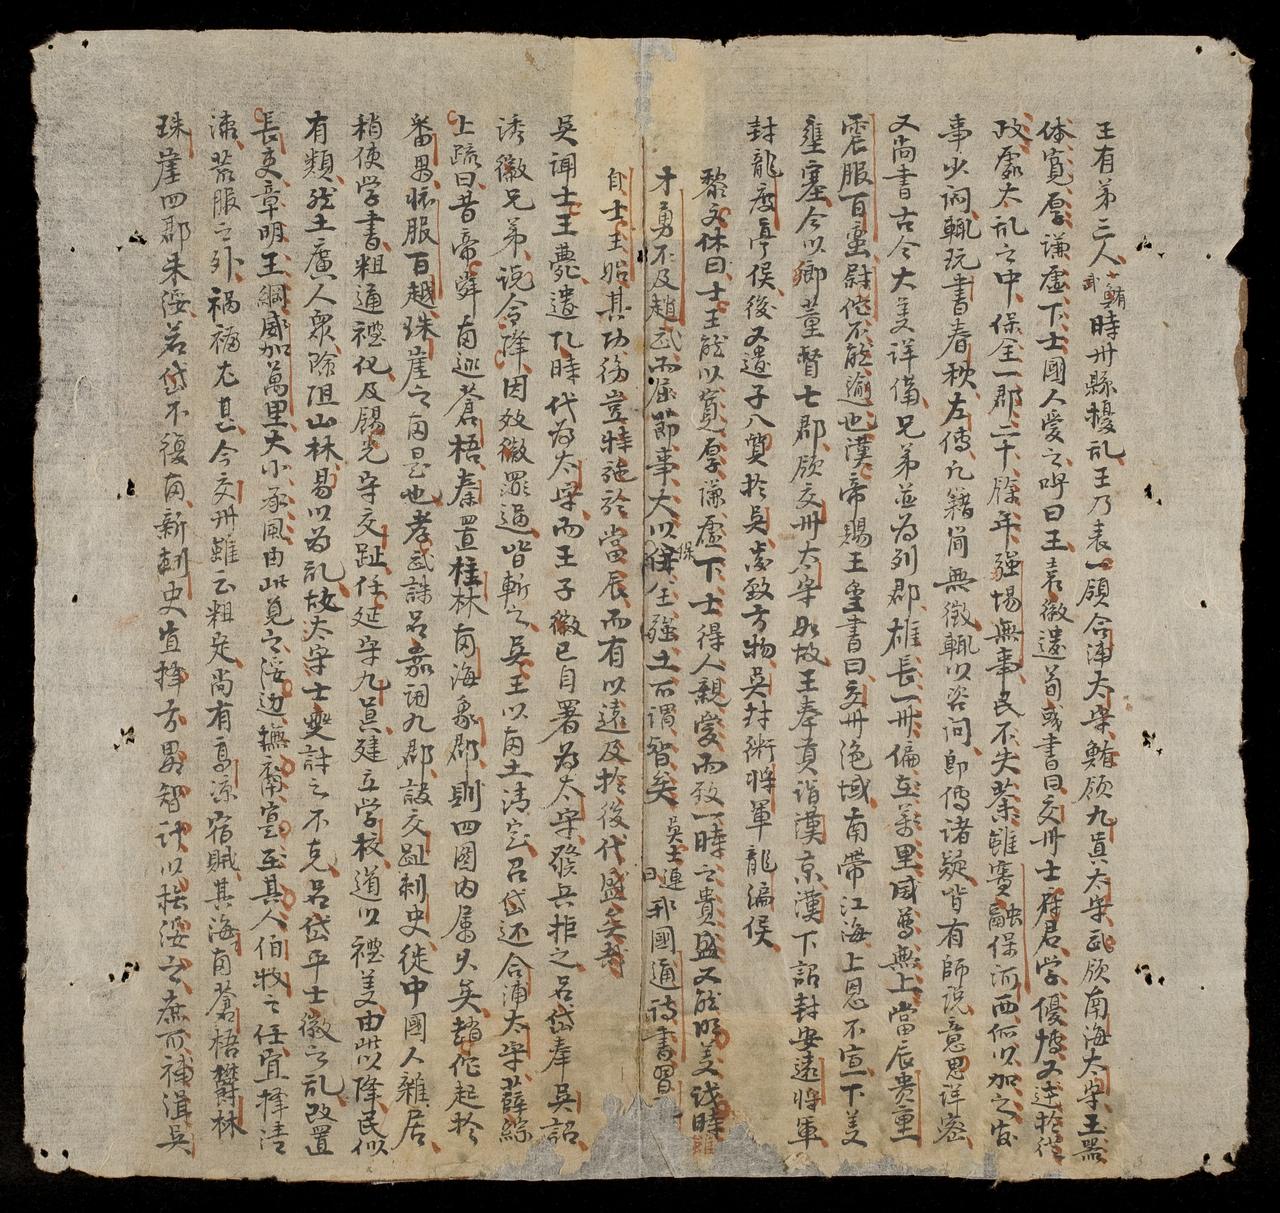 王有弟三人䵋武鮪時州縣擾乱王乃表䵋領合浦太守鮪領九真太守武領南海太守王器
体寬厚謙虛下士國人愛之呼曰王袁徽遺荀彧書曰交州士府君学優博又达於從
政處大乱之中保全一郡二十餘年疆場無事民不失業雖竇融保河西何以加之官
事少闲輒玩書春秋左傳凡籍简無徵輒以咨问即傳诸疑皆有師说意思详密
又尚書古今大美详備兄弟並為列郡雄長一州偏在萬里威尊無上當辰贵重
震服百蛮尉佗不能逾也漢帝賜王玺書曰交州绝域南带江海上恩不宣下美
壅塞今以卿董督七郡领交州太守如故王奉貢诣漢京漢下詔封安遠將軍
封龍度亭侯後又遣子入質於吳歲致方物吳封衛將軍龍编侯
黎文休曰士王能以寬厚謙虛下士得人親愛而致一時之贵盛又能明美识時雖
才勇不及趙武而屈節事大以保全疆土可謂智矣吳士連曰我國通詩書習
自士王始其功徳豈特施於當辰而有以遠及於後代盛矣哉
吳闻士王薨遣陳時代为太守而王子徽已自署为太守發兵拒之吕岱奉吳詔
诱徽兄弟说令降因效徽罪過皆斬之吳王以南土清定召岱还合浦太守薛綜
上疏曰昔帝舜南巡蒼梧秦置桂林南海象郡則四國内属久矣趙佗起於
番禺怀服百越珠崖之南是也孝武誅吕嘉词九郡設交趾刺史徙中國人雜居
稍使学書粗通禮化及錫光守交趾任延守九真建立学校道以禮美由此以降民似
有類然土廣人衆險阻山林易以为乱故太守士燮討之不克吕岱平士徽之乱改置
長吏章明王綱威加萬里大小承風由此觅之绥边撫裔寔至其人伯牧之任宜擇清
流荒服之外禍福尤甚今交州雖云粗定尚有高凉宿賊其海南蒼梧欝林
珠崖四郡未绥若岱不復南新刺史宜擇方畧智计以拙绥之庶可補渞吳